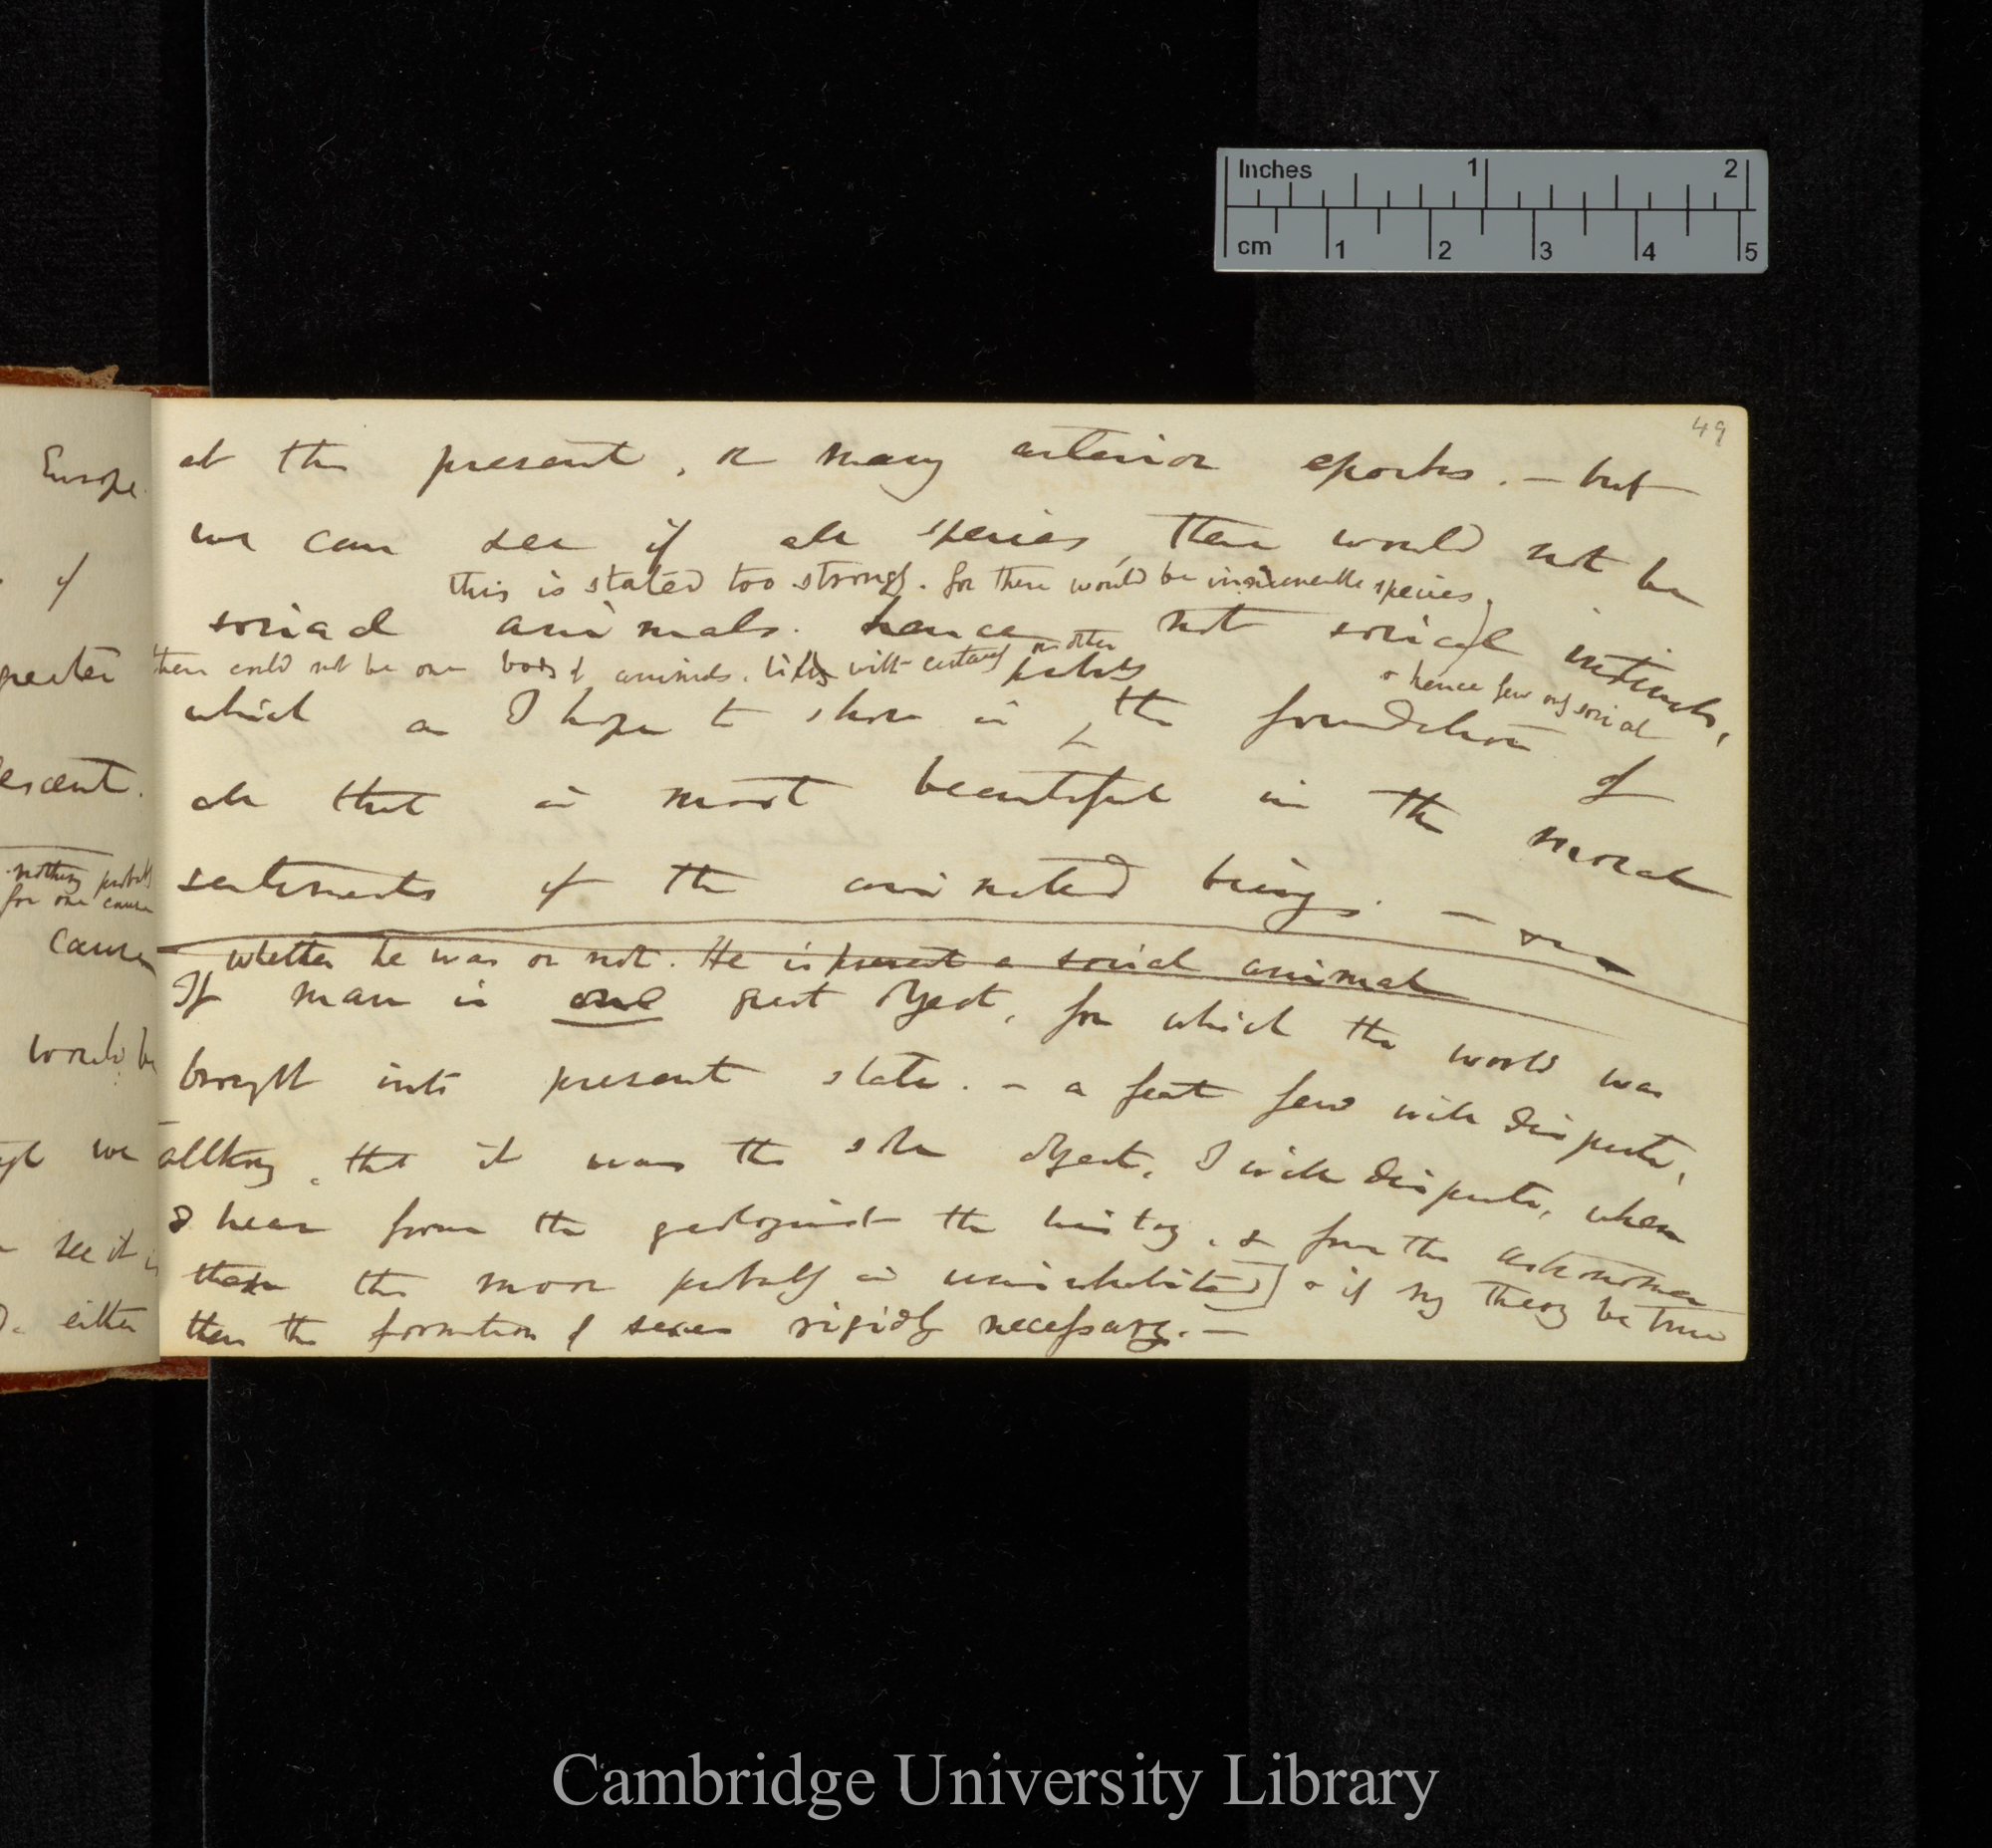 Inches 1 2
cm 1 2 3 4 5
49
Europe.
of
greater
descent.
nothing
for one cause
cause
would be
we
see it is
either
at the present, or many anterior epochs. — but
we can see if all species, there would not be
this is stated too strongly. for there would be innumerable species,
social animals. hence not social instincts,
there could not be one body of animals. with certainty on other
& hence few only social
which as I hope to show is the foundation of
all that is most beautiful in the moral
sentiments of the animated beings. —
whether he was or not. He is present a social animal
If man is one great object, for which the world was
brought into present state. — a fact few will dispute,
although, that it was the sole object, I will dispute, when
I hear from the geologist the history, & from the astronomer
that the moon probably is uninhabited] & if my theory be true
then the formation of sexes rigidly necessary. —
Cambridge University Library